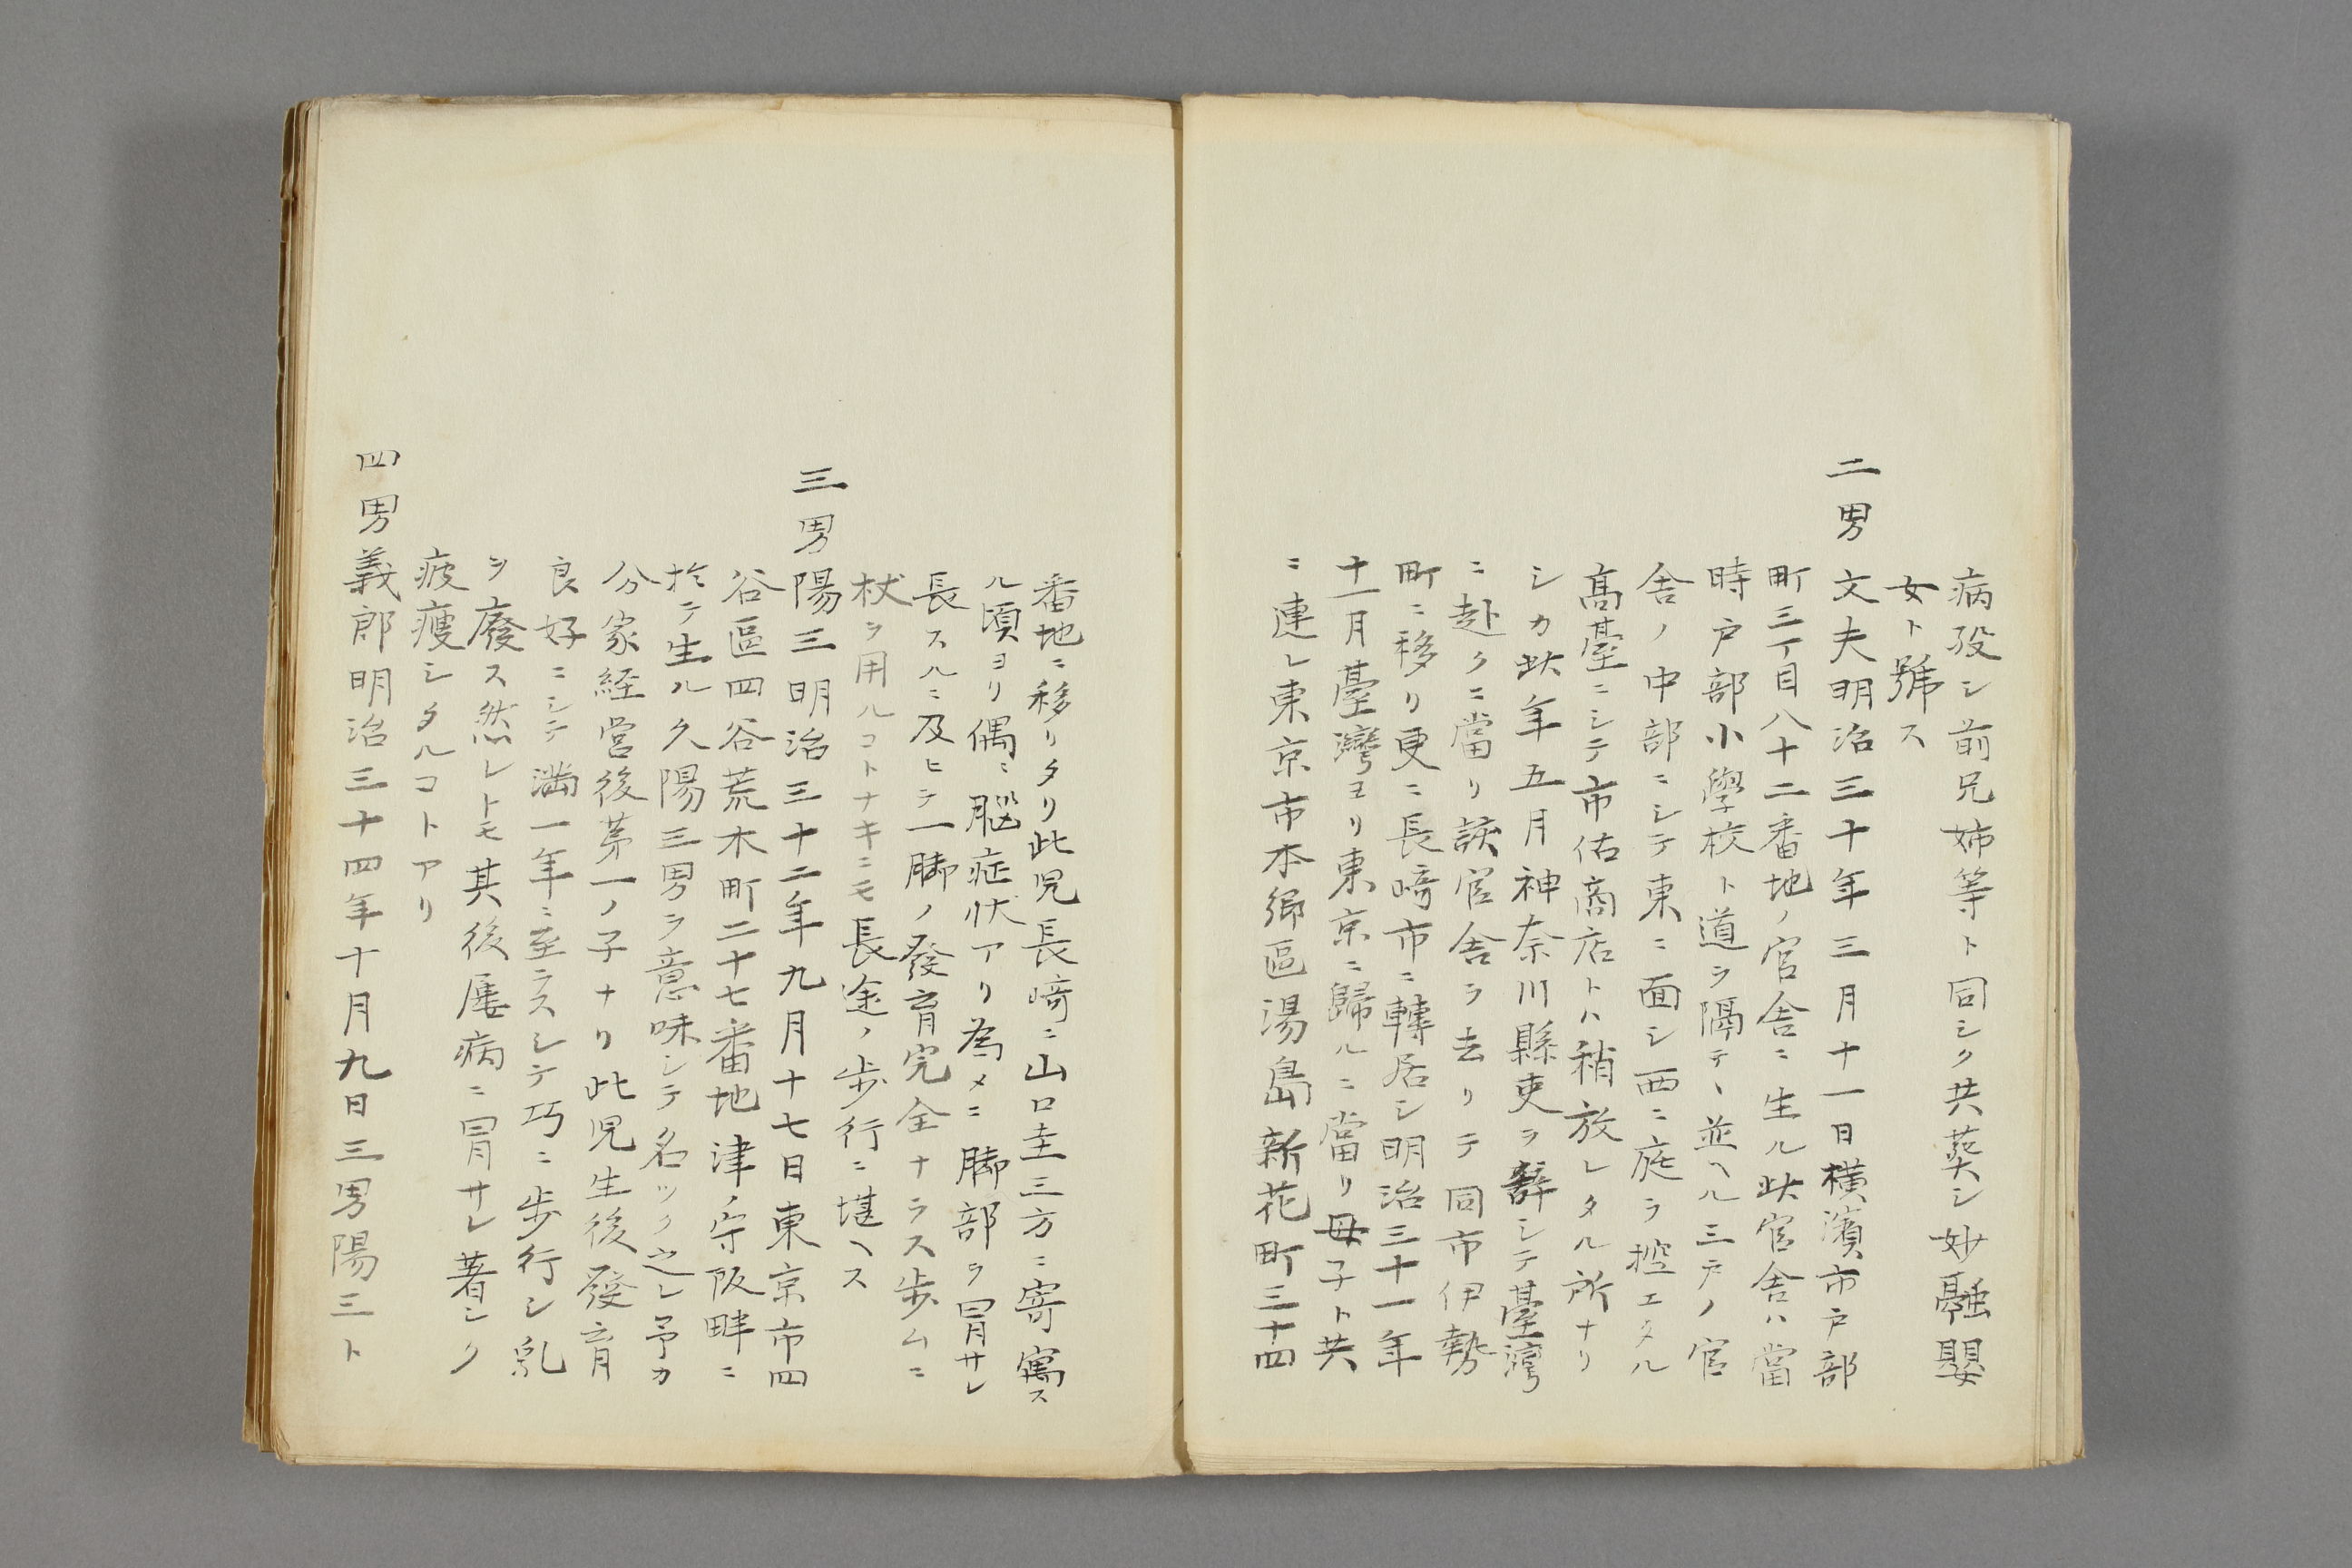 病歿シ前兄姉等ト同シク共葬シ妙融嬰
女ト號ス
二男文夫明治三十年三月十一日横濱市戸部
町三丁目八十二番地ノ官舎ニ生ル此官舎ハ當
時戸部小學校ト道ヲ隔テヽ並ヘル三戸ノ官
舎ノ中部ニシテ東ニ面シ西ニ庭ヲ控エタル
髙䑓ニシテ市佑商店トハ稍放レタル所ナリ
シカ此年五月神奈川縣吏ヲ辭シテ臺灣
ニ赴クニ當リ該官舎ヲ去リテ同市伊勢
町ニ移リ更ニ長﨑市ニ轉居シ明治三十一年
十一月臺灣ヨリ東京ニ歸ルニ當リ母子ト共
ニ連レ東京市本郷區湯島新花町三十四
番地ニ移リタリ此児長﨑ニ山口圭三方ニ寄寓ス
ル頃ヨリ偶ニ脳症状アリ為メニ脚部ヲ冒サレ
長スルニ及ヒテ一脚ノ發育完全ナラス歩ムニ
杖ヲ用ルコトナキニモ長途ノ歩行ニ堪ヘス
三男陽三明治三十二年九月十七日東京市四
谷區四谷荒木町二十七番地津ノ守阪畔ニ
於テ生ル久陽三男ヲ意味シテ名ツク之レ予カ
分家経営後第一ノ子ナリ此児生後發育
良好ニシテ満一年ニ至ラスシテ巧ニ歩行シ乳
ヲ廢ス然レトモ其後屢病ニ冒サレ著シク
疲瘦シタルコトアリ
四男義郎明治三十四年十月九日三男陽三ト